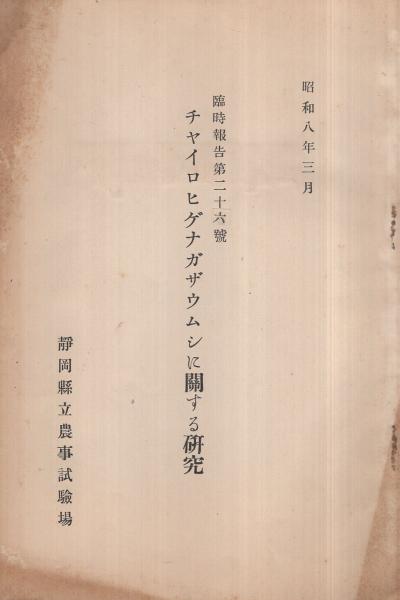 昭和八年三月
臨時報告第二十六號
チャイロヒゲナガザウムシに關する硏究
靜岡縣立農事試驗場